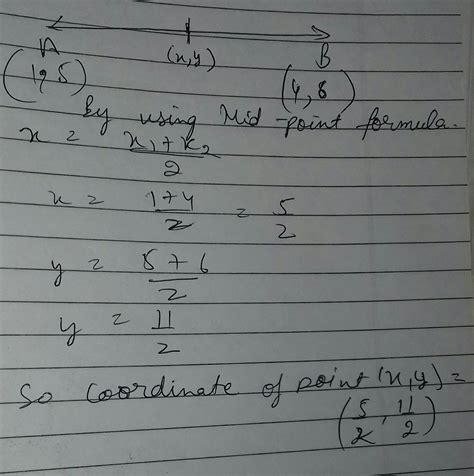 A (x,y) B
(1,5) (4,8)
By using Mid-point formula.
x = x₁+x₂/2
x = 1+4/2 = 5/2
y = 5+6/2
y = 11/2
So coordinate of point (x,y) =
(5/2, 11/2)